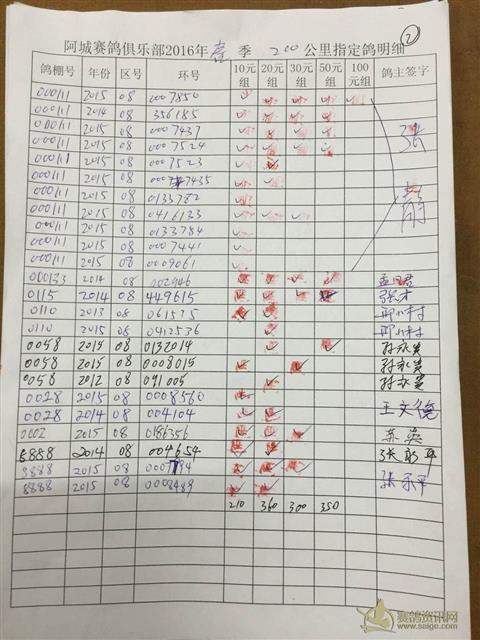 ②
阿城赛鸽俱乐部2016年 春 季 200 公里指定鸽明细
鸽棚号 年份 区号 环号 10元组 20元组 30元组 50元组 100元组 鸽主签字
000111 2015 08 0007850
000111 2014 08 356185
000111 2015 08 0007437
000111 2015 08 0007524
000111 2015 08 0007523
000111 2015 08 0007435
000111 2015 08 0133782
000111 2015 08 0416133
000111 2015 08 0133784
000111 2015 08 0007441
000111 2015 08 0009061
张
000133 2014 08 002946
0115 2014 08 449615
0110 2013 08 061515
0110 2015 08 0412536
0058 2015 08 0132014
0058 2015 08 0008015
0058 2012 08 091005
0028 2015 08 0008560 王文德
0028 2014 08 004104
0002 2015 08 0186356
8888 2014 08 004654
8888 2015 08
8888 2015 08 0008489
210 360 300 350
赛鸽资讯网
www.saige.com